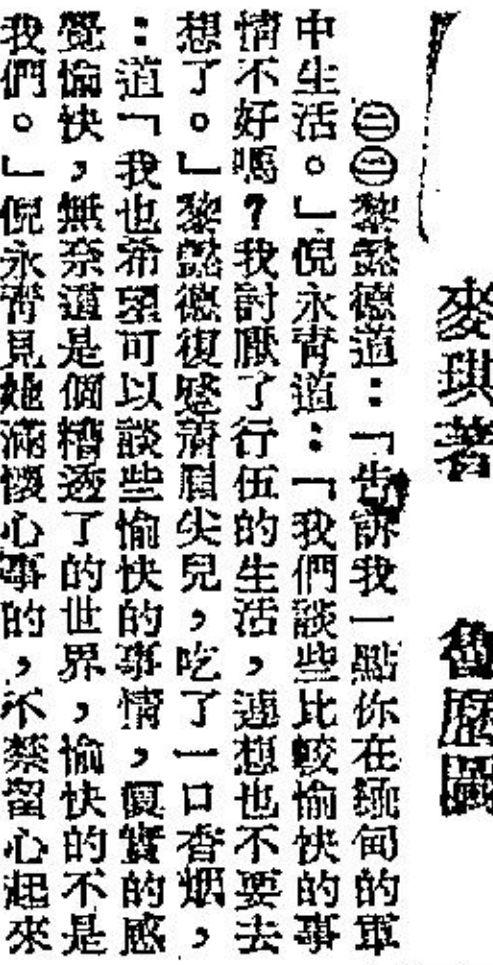 麥琪著 歷圖
黎懿德道：「告訴我一點你在緬甸的軍
中生活。」倪永青道：「我們談些比較愉快的事
情不好嗎？我討厭了行伍的生活，連想也不要去
想了。」黎懿德復蹙着眉尖兒，吃了一口香烟，
：道「我也希望可以談些愉快的事情，實的感
覺愉快，無奈這是個糟透了的世界，愉快的不是
我們。」倪永青見她滿懷心事的，不禁留心起來